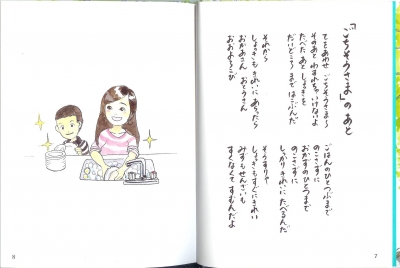 「ごちそうさま」のあと
てをあわせ ごちそうさま〜
そのあと わすれちゃ いけないよ
たべた あと しょっきを
だいどころ まで はこぶんだ
ごはんのひとつぶまで
のこさずに
おかずのひとつまで
のこさずに
しっかり きれいに たべるんだ
それから
しょっきも きれいに あらったら
おかあさん おとうさん
おおよろこび
そうすりゃ
しょっきも すぐにきれい
みずも せんざいも
すくなくて すむんだよ
8
7